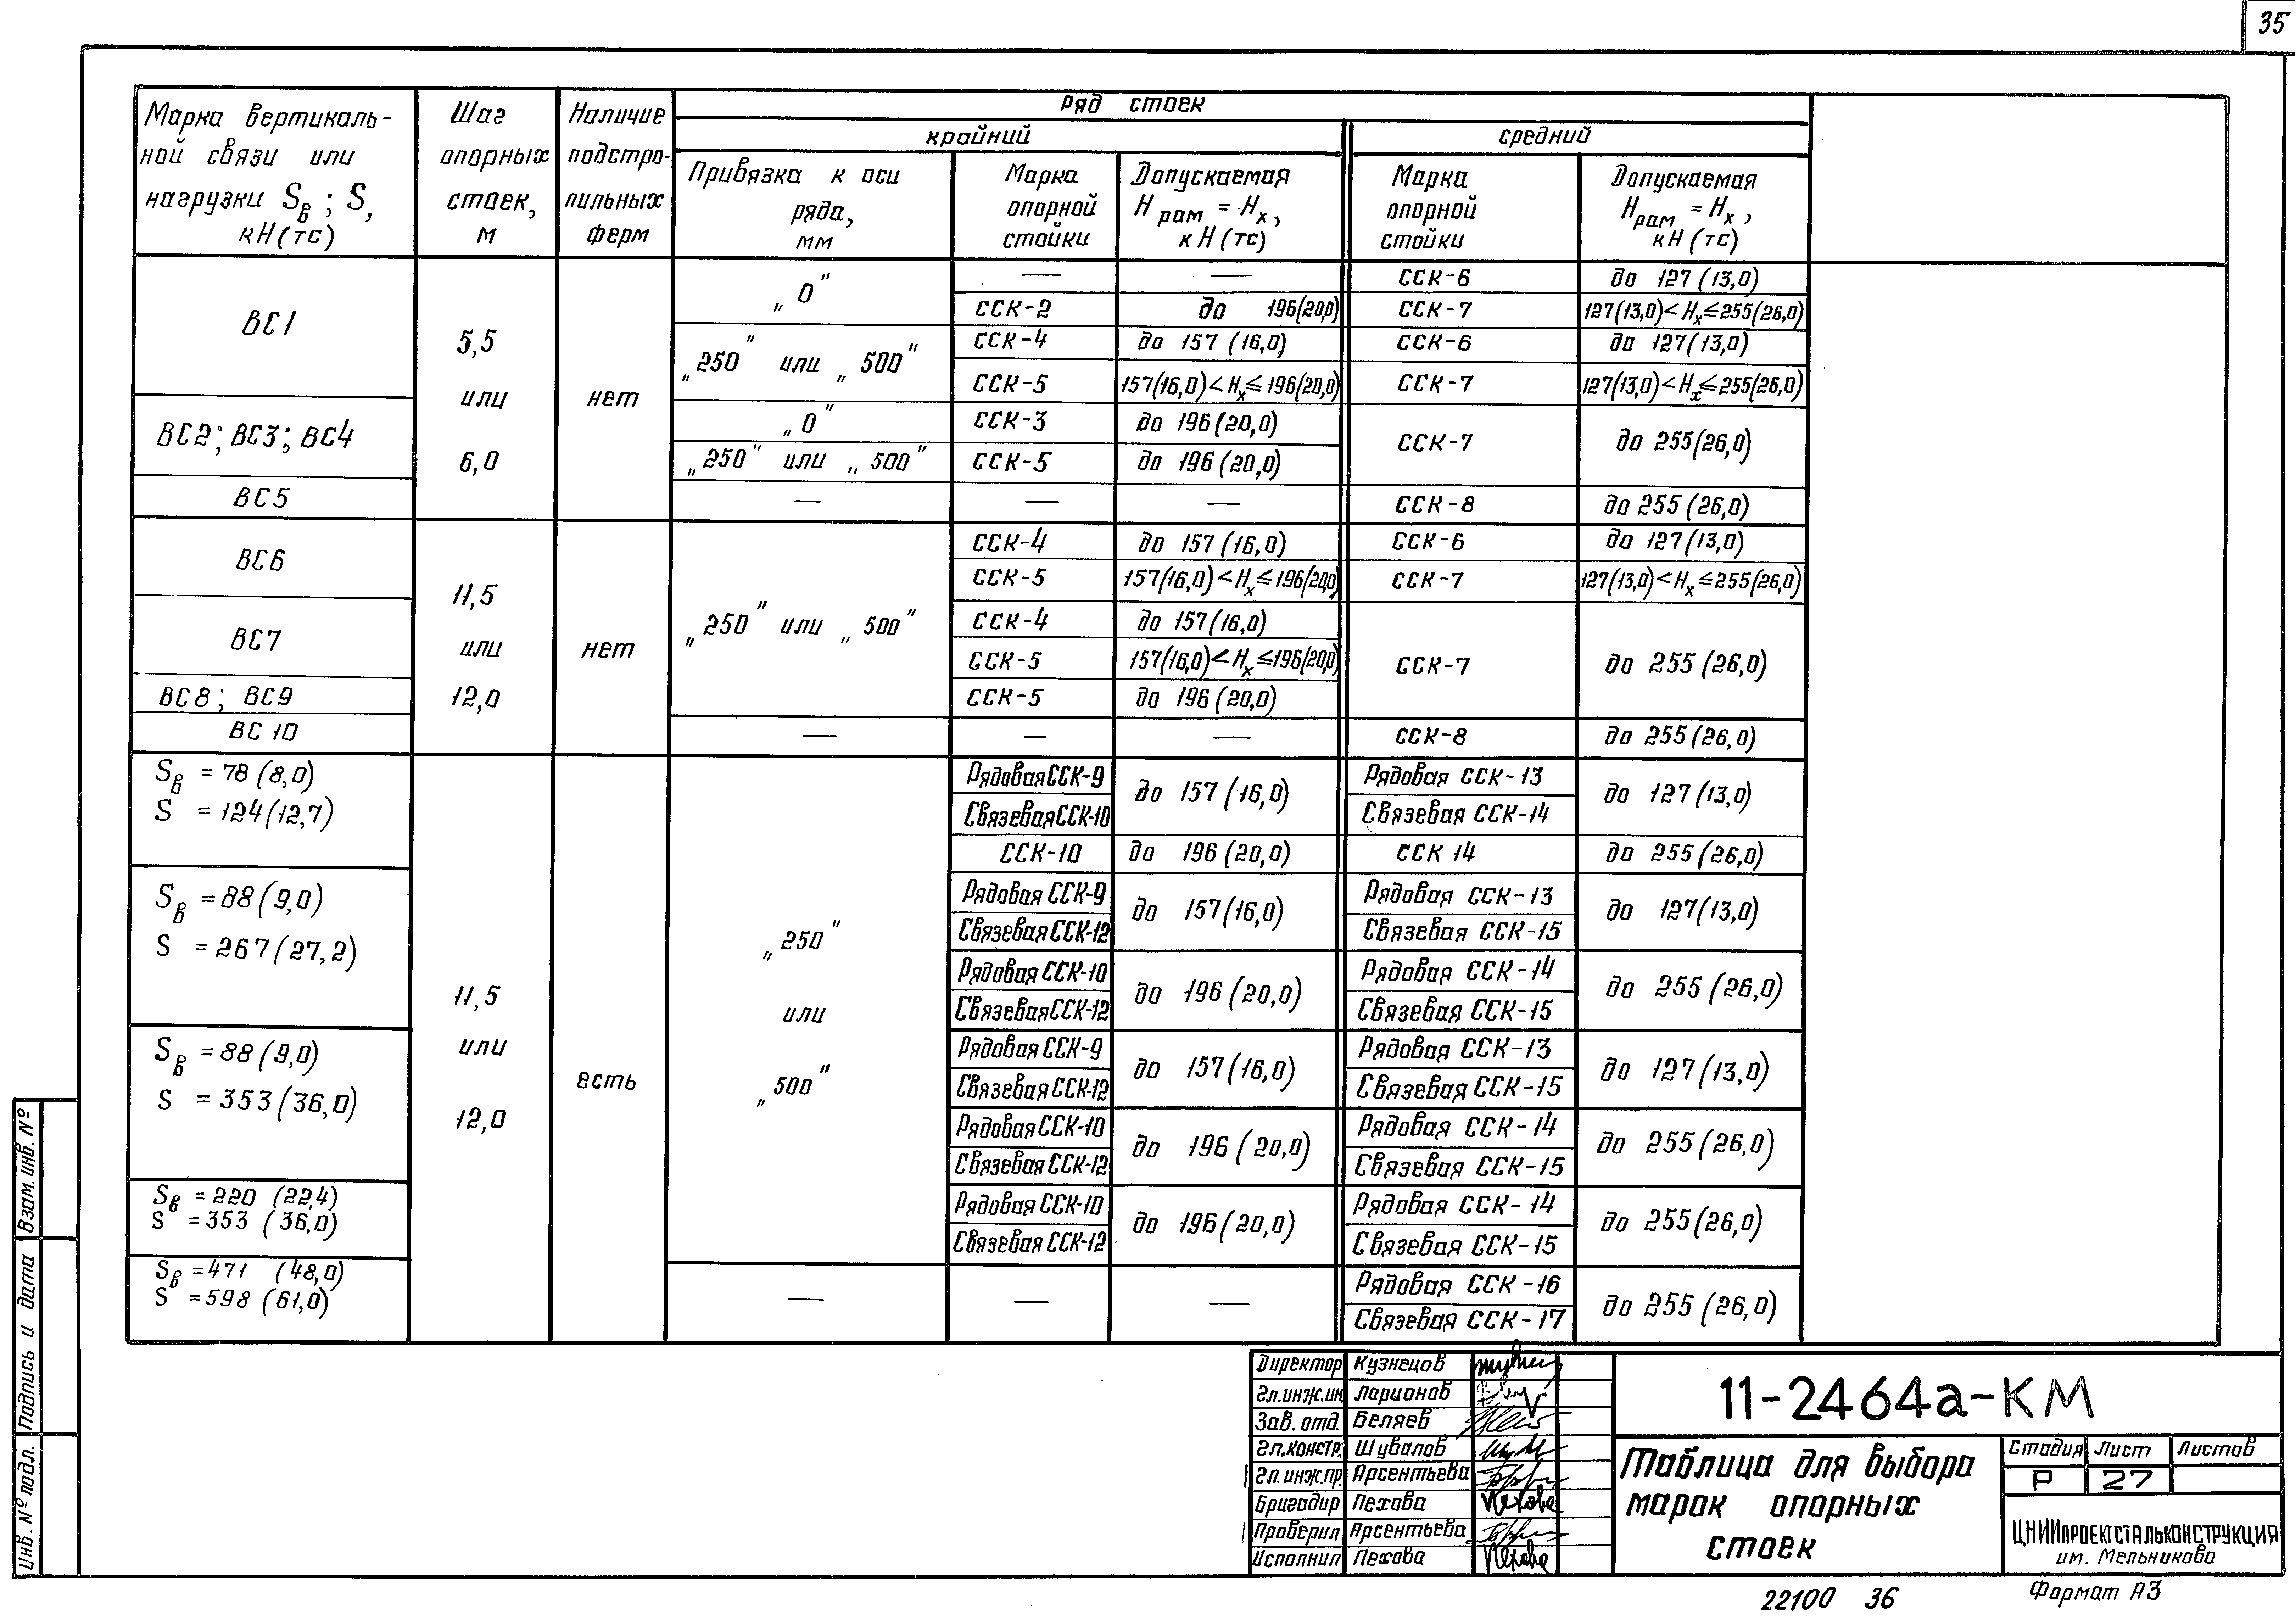 35
Марка вертикаль-
ной связи или
нагрузки Sв ; S,
кН (тс)
Шаг
опорных
стоек,
м
Наличие
подстро-
пильных
ферм
Ряд стоек
крайний
средний
Привязка к оси
ряда,
мм
Марка
опорной
стойки
Допускаемая
Н рам = Нх,
кН (тс)
Марка
опорной
стойки
Допускаемая
Нрам = Нх,
кН (тс)
ВС1
5,5
или
6,0
нет
„0"
— — ССК-6 до 127 (13,0)
ССК-2 до 196(20,0) ССК-7 127(13,0)<Нх≤255(26,0)
„250" или „500"
ССК-4 до 157 (16,0) ССК-6 до 127(13,0)
ССК-5 157(16,0)<Нх≤196(20,0) ССК-7 127(13,0)<Нх≤255(26,0)
ВС2; ВС3; ВС4
„0" ССК-3 до 196(20,0)
ССК-7 до 255(26,0)
„250" или „500" ССК-5 до 196 (20,0)
ВС5 — — — ССК-8 до 255 (26,0)
ВС6
11,5
или
12,0
нет
„250" или „500"
ССК-4 до 157 (16,0) ССК-6 до 127(13,0)
ССК-5 157(16,0)<Нх≤196(20,0) ССК-7 127(13,0)<Нх≤255(26,0)
ВС7
ССК-4 до 157(16,0)
ССК-5 157(16,0)<Нх≤196(20,0)
ССК-7 до 255 (26,0)
ВС8; ВС9 ССК-5 до 196 (20,0)
ВС10 — — — ССК-8 до 255(26,0)
Sв = 78 (8,0)
S = 124(12,7)
11,5
или
12,0
есть
„250"
или
„500"
Рядовая ССК-9
Связевая ССК-10
до 157 (16,0)
Рядовая ССК-13
Связевая ССК-14
до 127(13,0)
ССК-10 до 196 (20,0) ССК 14 до 255(26,0)
Sв = 88(9,0)
S = 267(27,2)
Рядовая ССК-9
Связевая ССК-12
до 157(16,0)
Рядовая ССК-13
Связевая ССК-15
до 127(13,0)
Рядовая ССК-10
Связевая ССК-12
до 196 (20,0)
Рядовая ССК-14
Связевая ССК-15
до 255 (26,0)
Sв = 88(9,0)
S = 353(36,0)
Рядовая ССК-9
Связевая ССК-12
до 157(16,0)
Рядовая ССК-13
Связевая ССК-15
до 127(13,0)
Рядовая ССК-10
Связевая ССК-12
до 196 (20,0)
Рядовая ССК-14
Связевая ССК-15
до 255(26,0)
Sв = 220 (22,4)
S = 353 (36,0)
Рядовая ССК-10
Связевая ССК-12
до 196(20,0)
Рядовая ССК-14
Связевая ССК-15
до 255(26,0)
Sв = 471 (48,0)
S = 598 (61,0)
— — —
Рядовая ССК-16
Связевая ССК-17
до 255 (26,0)
Взам. инв. №
Подпись и дата
Инв. № подл.
Директор Кузнецов
Гл.инж.ин. Ларионов
Зав. отд. Беляев
Гл.констр. Шувалов
Гл.инж.пр. Арсентьева
Бригадир Пехова
Проверил Арсентьева
Исполнил Пехова
11-2464а-КМ
Таблица для выбора
марок опорных
стоек
Стадия Лист Листов
Р 27
ЦНИИПРОЕКТСТАЛЬКОНСТРУКЦИЯ
им. Мельникова
22100 36
Формат А3